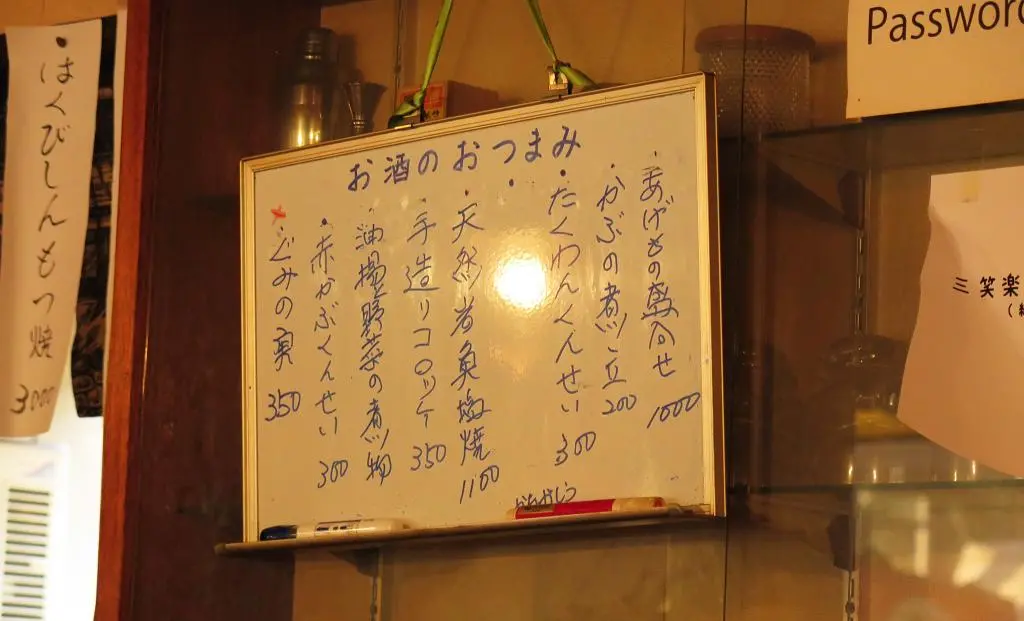 お酒のおつまみ
・あげもの盛合せ 1000
・かぶの煮 200
・たくわんくんせい 300
・
・天然岩魚塩焼 1100
・手造りコロッケ 350
・油揚野菜の煮物
・赤かぶくんせい 300
・ぐみの実 350
・はくびしんもつ焼 3000
Password
三笑楽